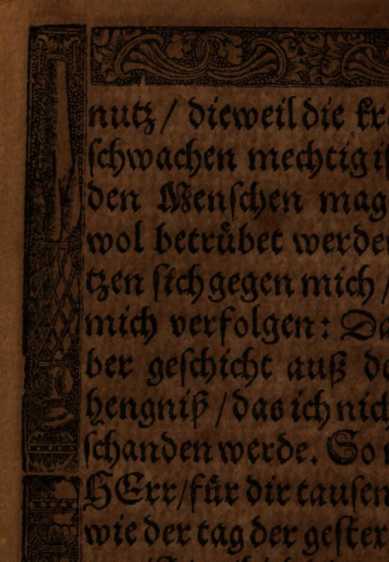 nutz / dieweil die
schwachen mechtig
den Menschen mag
wol betrübet
tzen sich gegen mich /
mich verfolgen:
ber geschicht auß
hengniß / das ich
schanden werde. So
HErr / für dir
wie der tag der